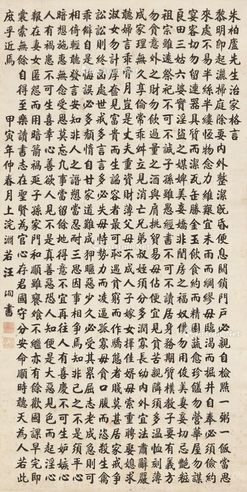 朱柏廬先生治家格言
黎明即起灑掃庭除要內外整潔既昏便息關鎖門戶必親自檢點一粥一飯當思
來處不易半絲半縷恆念物力維艱宜未雨而綢繆毋臨渴而掘井自奉必須儉約
宴客切勿留連器具質而潔瓦缶勝金玉飲食約而精園蔬愈珍饈勿營華屋勿謀
良田三姑六婆實淫盜之媒婢美妾嬌非閨房之福奴僕勿用俊美妻妾切忌豔妝
祖宗雖遠祭祀不可不誠子孫雖愚經書不可不讀居身務期質樸教子要有義方
勿貪意外之財勿飲過量之酒與肩挑貿易毋佔便宜見貧苦親鄰須多溫恤刻薄
成家理無久享倫常乖舛立見消亡兄弟叔姪須分多潤寡長幼內外宜法肅辭嚴
聽婦言乖骨肉豈是丈夫重資財薄父母不成人子嫁女擇佳壻毋索重聘娶媳求
淑女勿計厚奩見富貴而生諂容者最可恥遇貧窮而作驕態者賤莫甚居家戒爭
訟訟則終凶處世戒多言言多必失毋恃勢力而凌逼孤寡毋貪口腹而恣殺生禽
乖僻自是悔誤必多頹惰自甘家道難成狎暱惡少久必受其累屈志老成急則可
相倚輕聽發言安知非人之譖愬當忍耐三思因事相爭焉知非己之不是須平心
暗想施惠無念受恩莫忘凡事當留餘地得意不宜再往人有喜慶不可生妒嫉心
人有禍患不可生喜幸心善欲人見不是真善惡恐人知便是大惡見色而起淫心
報在妻女匿怨而用暗箭禍延子孫家門和順雖饔飧不繼亦有餘歡國課早完即
囊橐無餘自得至樂讀書志在聖賢為官心存君國守分安命順時聽天為人若此
庶乎近焉
甲寅年仲春月上浣淵若汪洵書